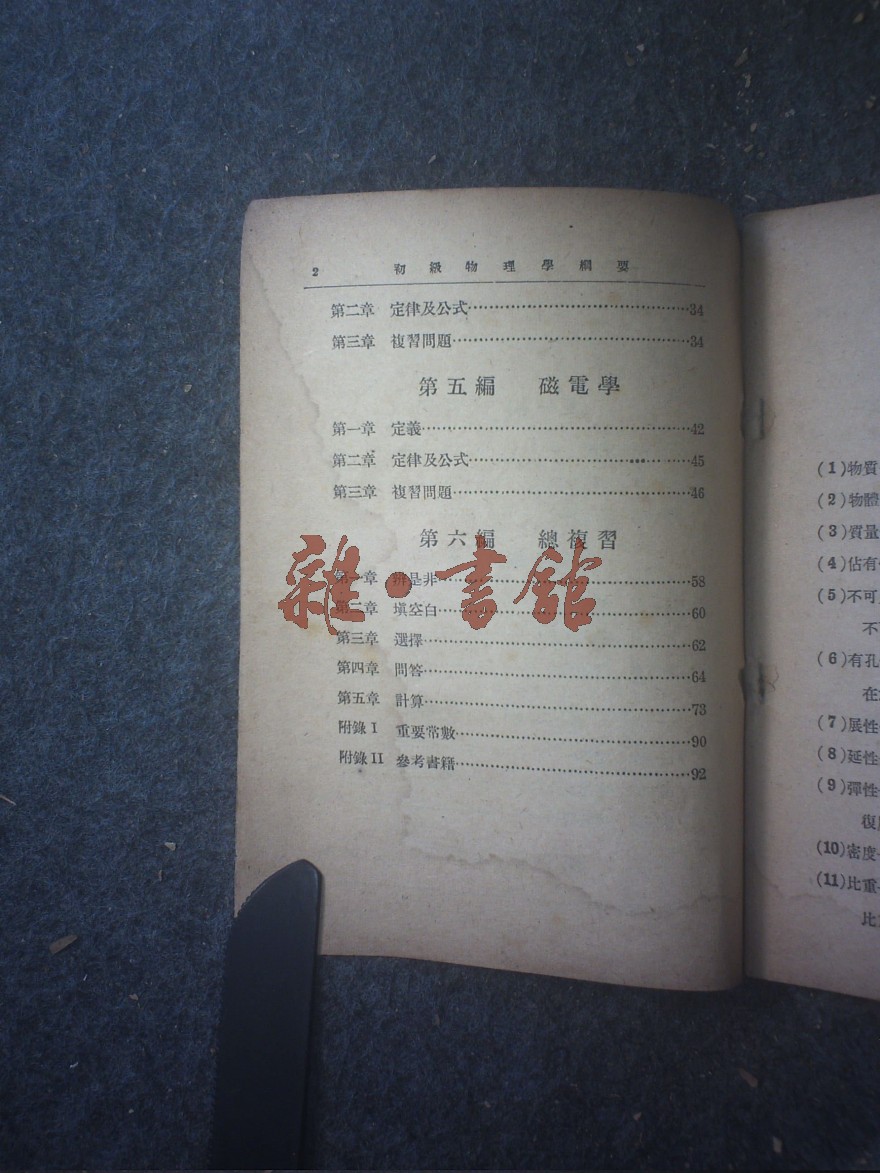 2 初級物理學綱要
第二章 定律及公式……………………………………34
第三章 複習問題………………………………………34
第五編 磁電學
第一章 定義……………………………………………42
第二章 定律及公式……………………………………45
第三章 複習問題………………………………………46
第六編 總複習
第一章 辨是非…………………………………………58
第二章 填空白…………………………………………60
第三章 選擇……………………………………………62
第四章 問答……………………………………………64
第五章 計算……………………………………………73
附錄I 重要常數………………………………………90
附錄II 參考書籍………………………………………92
雜·書館
(1)物質
(2)物體
(3)質量
(4)佔有
(5)不可
不
(6)有孔
在
(7)展性
(8)延性
(9)彈性
復
(10)密度
(11)比重
比